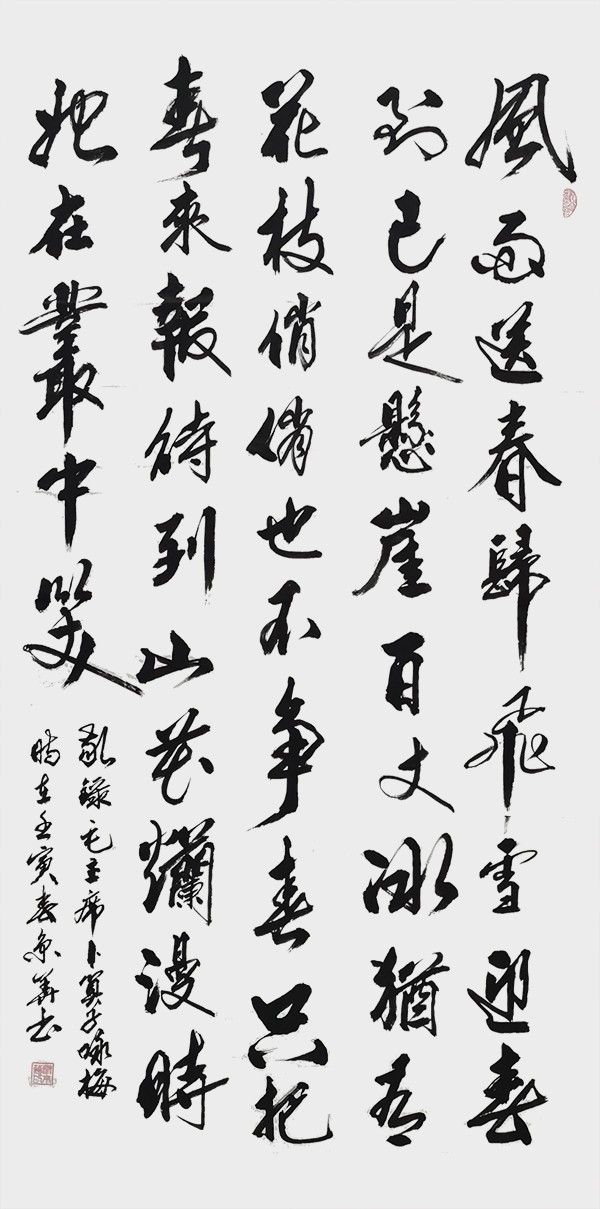 風雨送春歸飛雪迎春
到已是懸崖百丈冰猶有
花枝俏俏也不争春只把
春來報待到山花爛漫時
她在叢中笑
敬録毛主席卜算子咏梅
時在壬寅春京華书